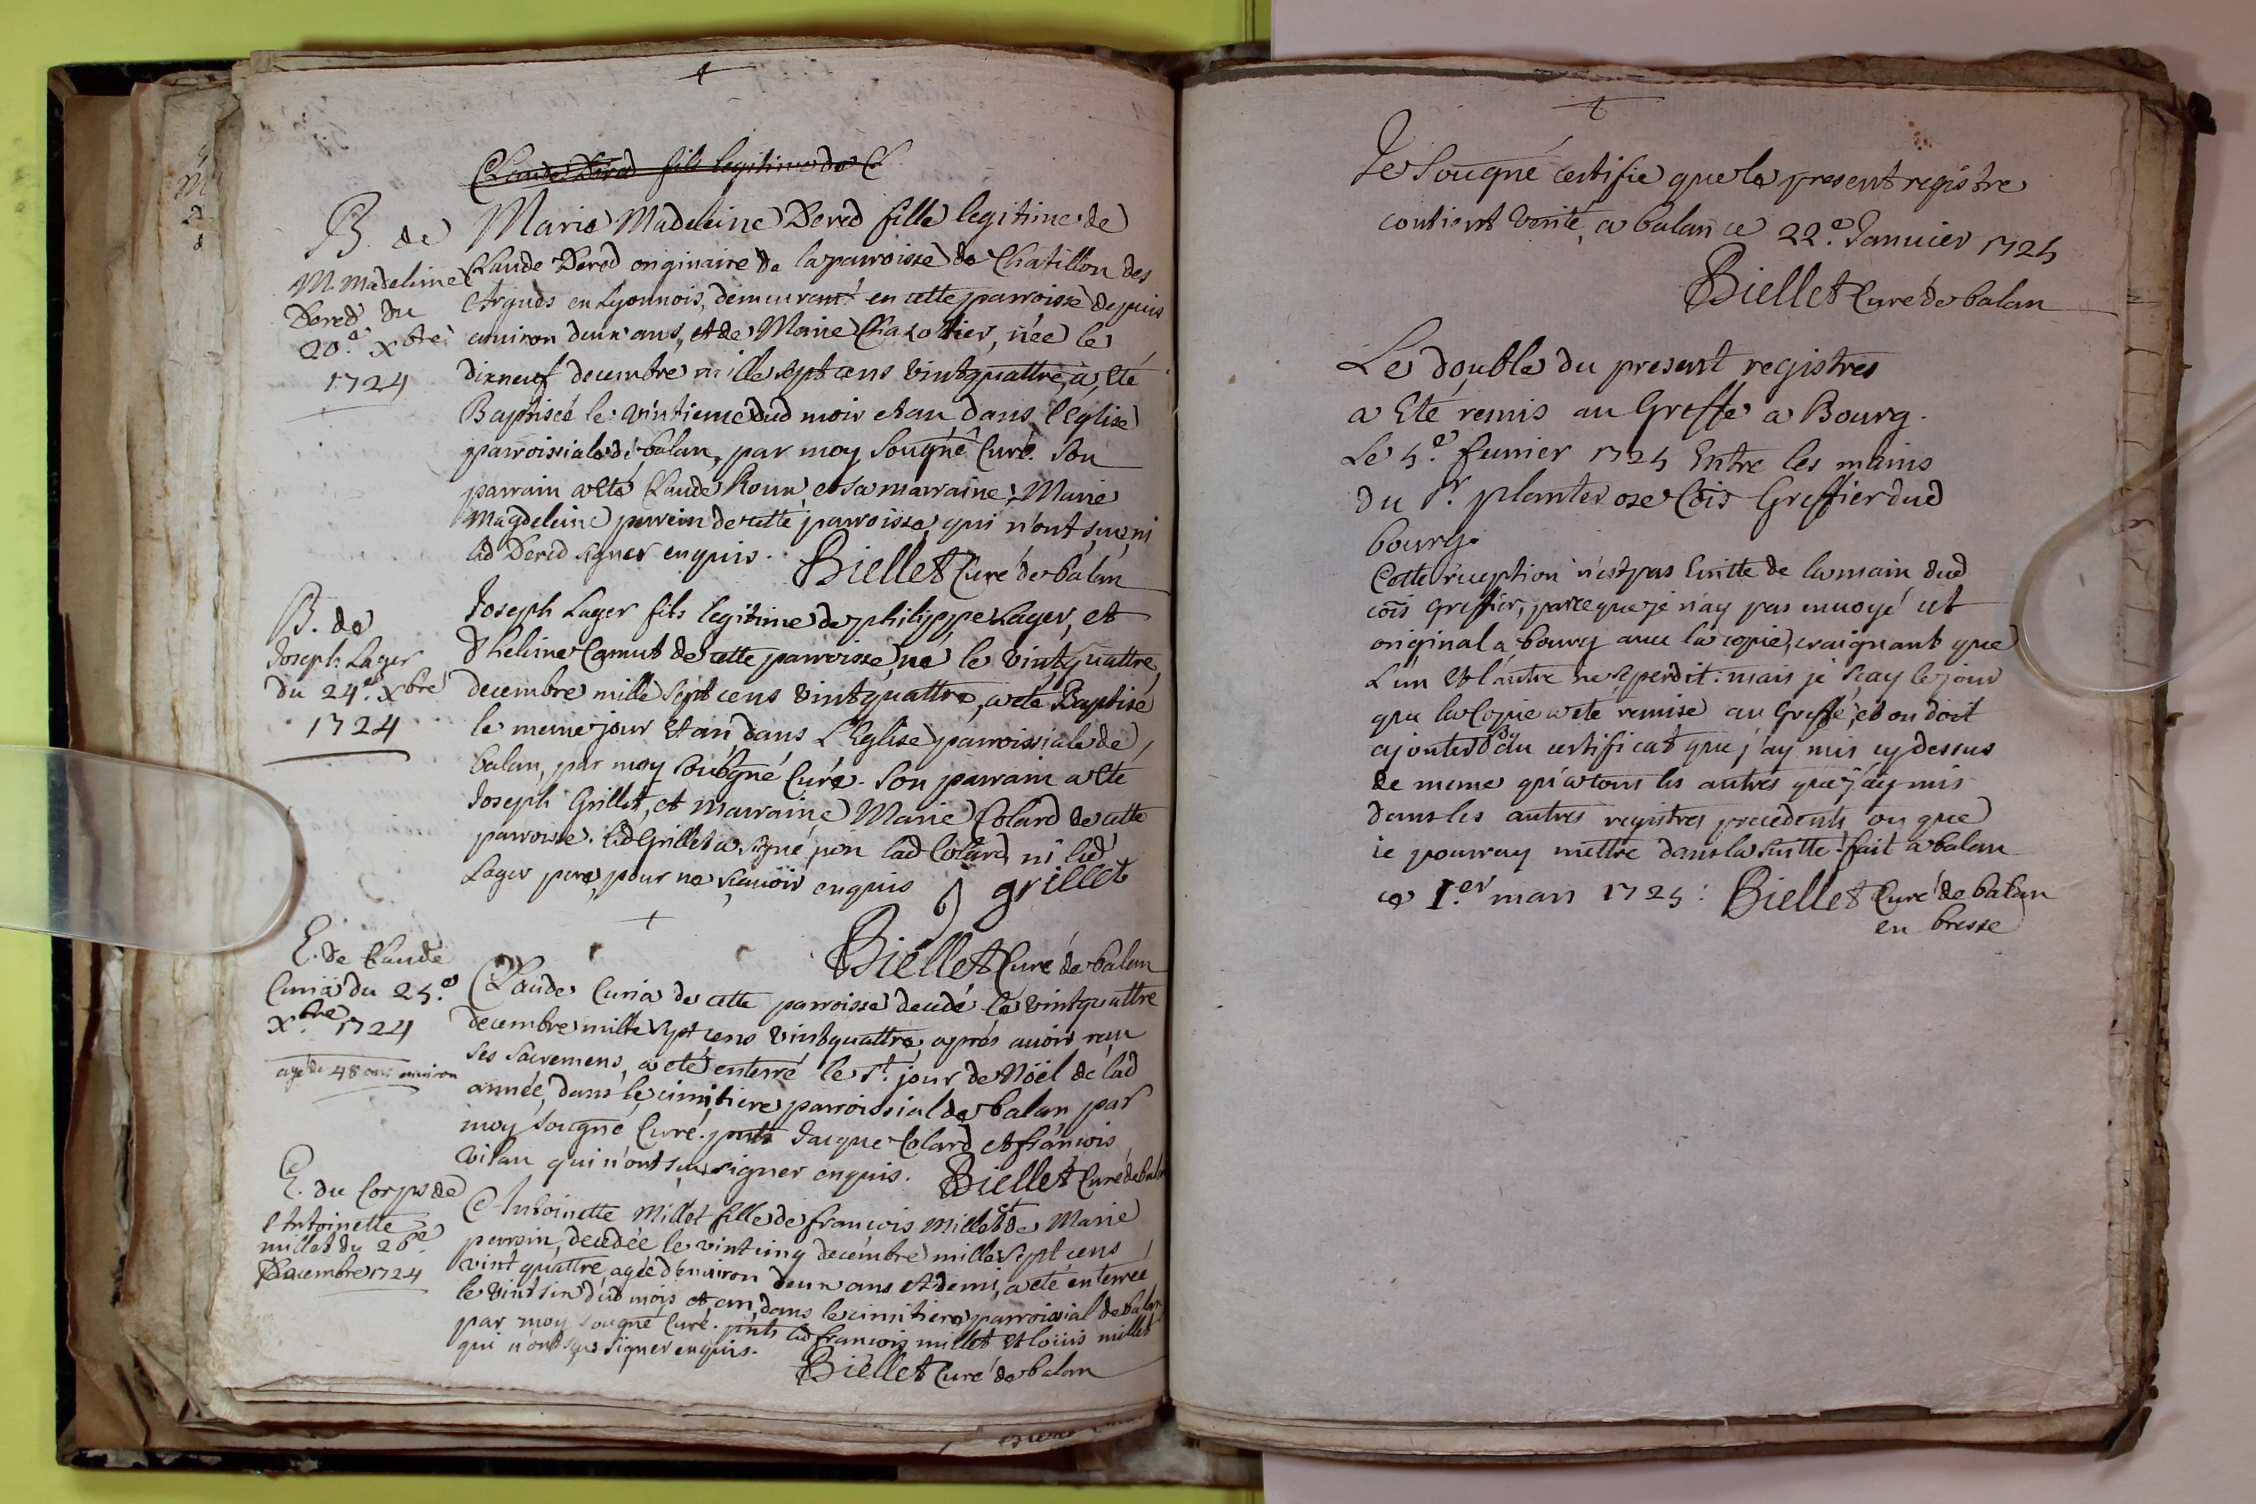 Claude Dered fils legitime de C
B. de
M. Madeleine
Dered du
20.e Xbre
1724
Marie Madeleine Dered fille legitime de
Claude Dered originaire de la parroisse de Chatillon des
Argues en Lyonnois, demeurant en cette parroisse depuis
environ deux ans, et de Marie née le
dixneuf decembre mille sept cens vintquattre, a eté
Baptisée le vintieme dud mois et an, dans l'Eglise
parroissiale de balan, par moy sougné Curé. Son
parrain a eté Claude Roux, et sa marraine, Marie
Magdeleine perrein de cette parroisse, qui n'ont sçu, ni
led Dered signer enquis. Biellet Curé de balan
B. de
Joseph Lager
du 24.e Xbre
1724
Joseph Lager fils legitime de philippe Lager, et
d'heleine Camut de cette parroisse, né le vintquattre
decembre mille sept cens vintquattre, a eté Baptisé
le meme jour et an, dans L'Eglise parroissiale de
balan, par moy sousgné Curé. Son parrain a eté
Joseph Grillet, et marraine Marie Colard de cette
parroisse. led Grillet a signé, non lad Colard, ni led
Lager pere, pour ne sçauoir enquis grillet
Biellet Curé de balan
E. de Claude
Curia du 25.e
Xbre 1724
agé de 48 ans environ
Claude Curia de cette parroisse decedé le vintquattre
decembre mille sept cens vintquattre, aprés auoir reçu
ses sacremens, a eté enterré le st. jour de Nöel de lad
année, dans le cimitiere parroissial de balan, par
moy sougné Curé. pnts Jacque Colard et françois
vilan qui n'ont sçu signer enquis. Biellet Curé de balan
E. du Corps de
Antoinette
millet du 26.e
Decembre 1724
Antoinette Millet fille de françois Millet et de Marie
perrein, decedée le vintcinq decembre mille sept cens
vint quattre, agée d'environ deux ans et demi, a eté enterrée
le vintsix dud mois et an, dans le cimitiere parroissial de balan
par moy sougné Curé. pnts led françois millet et loüis millet
qui n'ont sçu signer enquis.
Biellet Curé de balan
Je sougné certifie que le present registre
contient verité, a balan ce 22.e Januier 1725
Biellet Curé de balan
Le double du present registres
a eté remis au Greffe a Bourg.
Le 5.e feurier 1725 Entre les mains
du Sr. planter ose Cöis Greffier dud
bourg.
Cette reception n'est pas Ecritte de la main dud
cöis greffier, parce que je n'ay pas enuoyé cet
original a bourg auec la copie, craignant que
L'un et l'autre ne se perdit: mais je sçay le jour
que la Copie a eté remise au Greffe, et on doit
ajouter foy au certificat que j'ay mis cy dessus
de meme qu'a tous les autres que j'ay mis
dans les autres registres precedents ou que
je pourray mettre dans la suitte. fait a balan
ce 1.er mars 1725: Biellet Curé de balan
en bresse